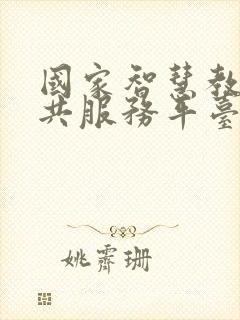 國家智慧教
共服務平臺
姚霽珊